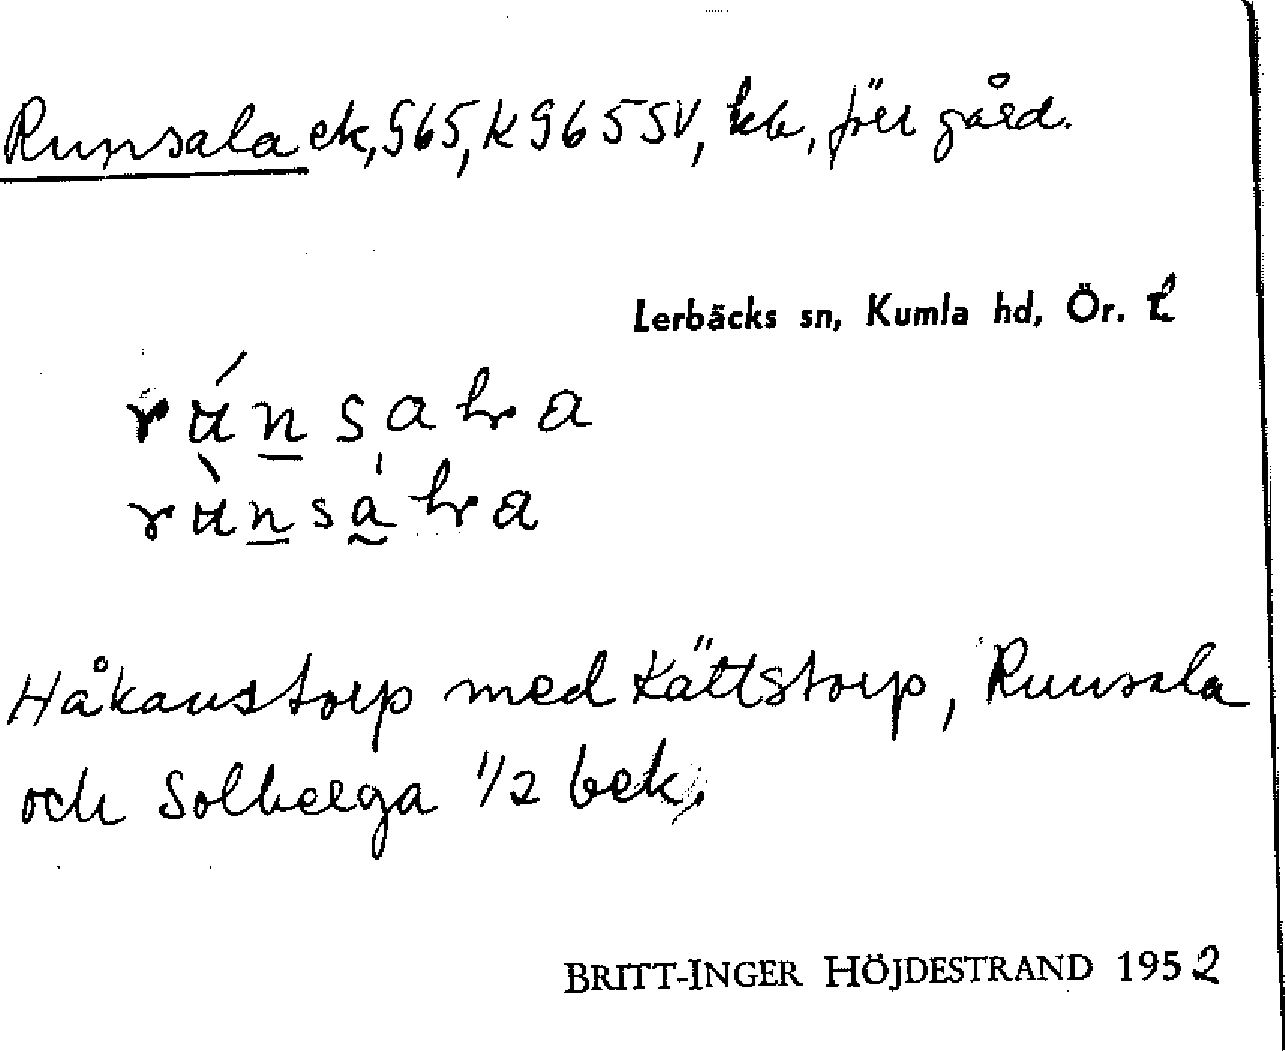 Runsala ek, G65, K G65 SV, kb, förr gård.
Lerbäcks sn, Kumla hd, Ör. L
rúnsala
rùnsàla
Håkanstorp med Kättstorp, Runsala
och Solberga 1/2 bek,
BRITT-INGER HÖJDESTRAND 1952